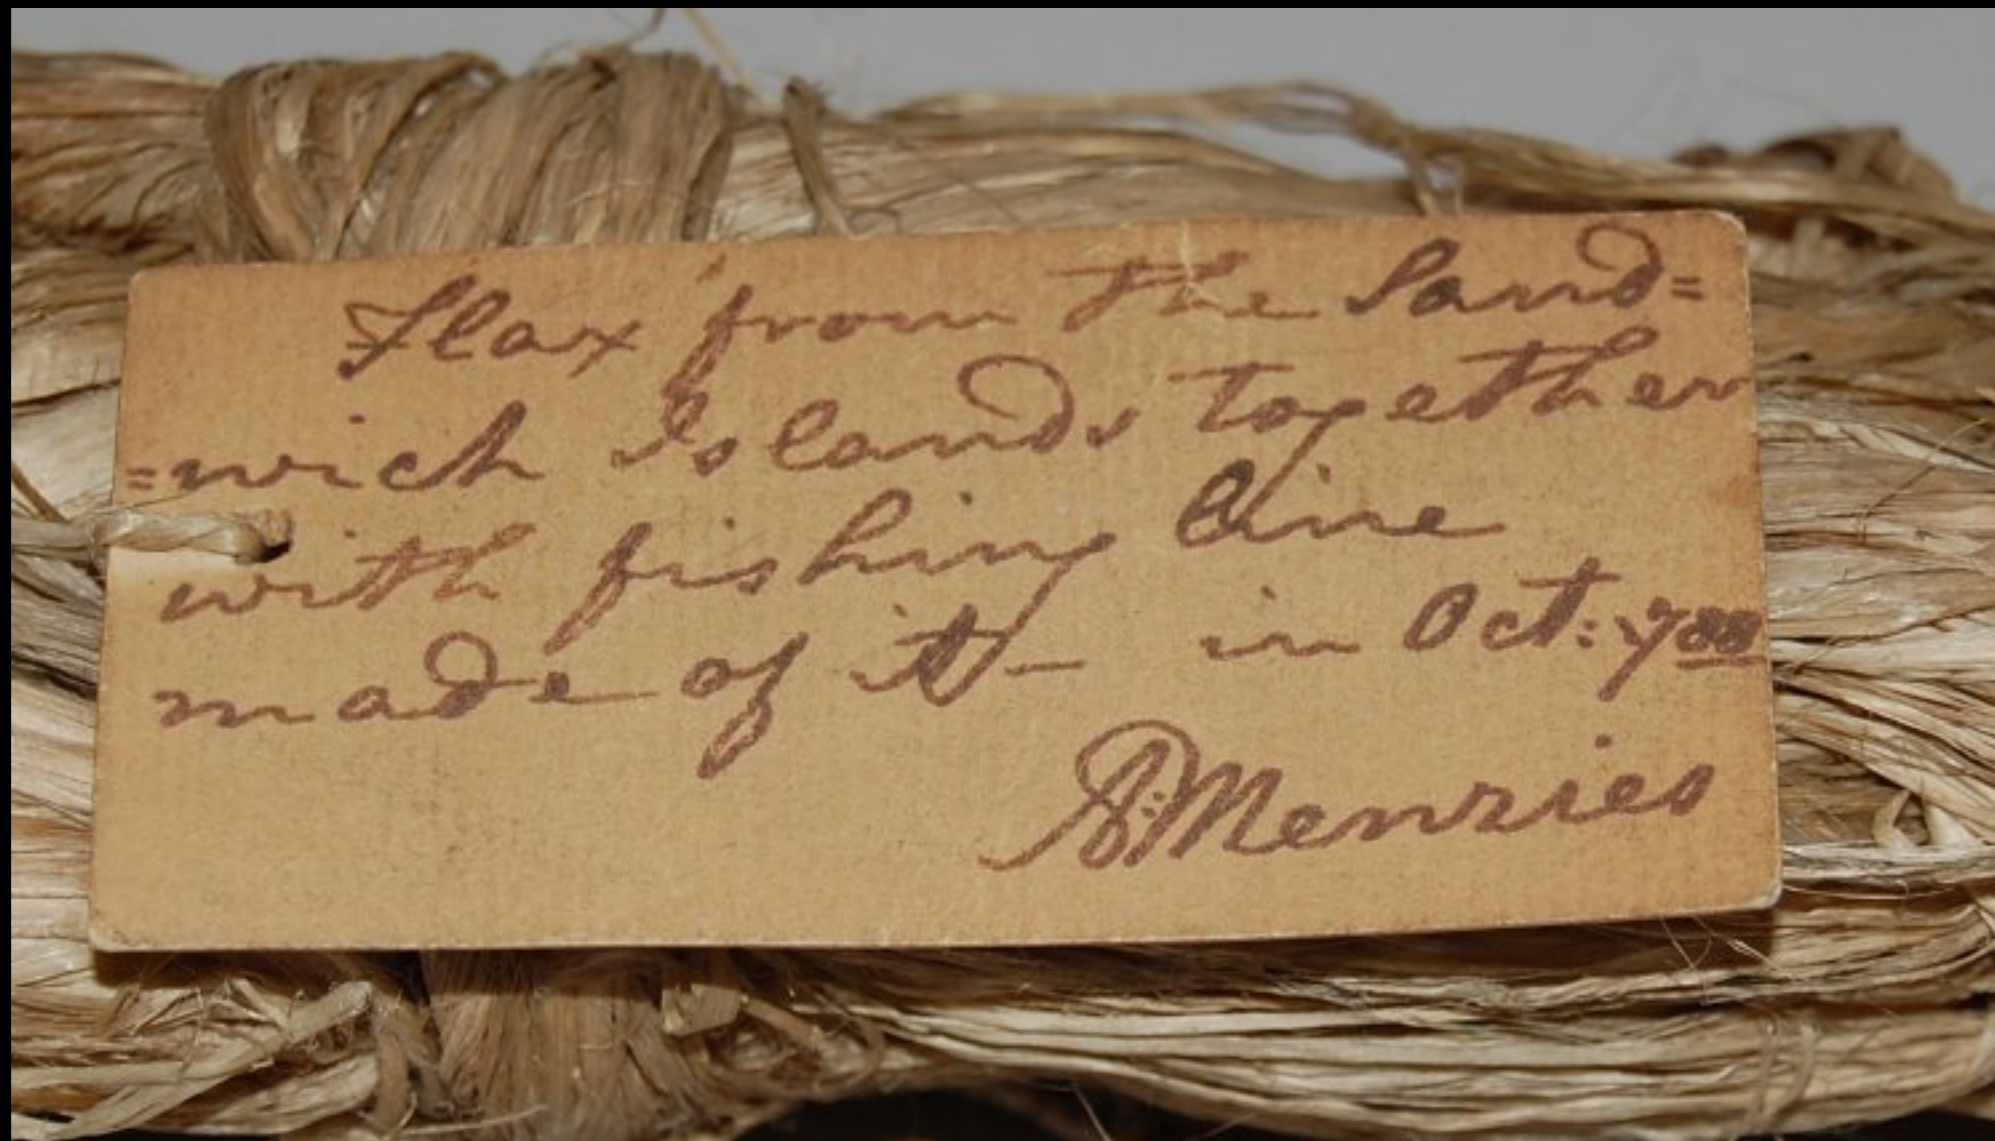 Flax from the Sand=
=wich Islands together
with fishing line
made of it - in Oct: 788
A: Menzies